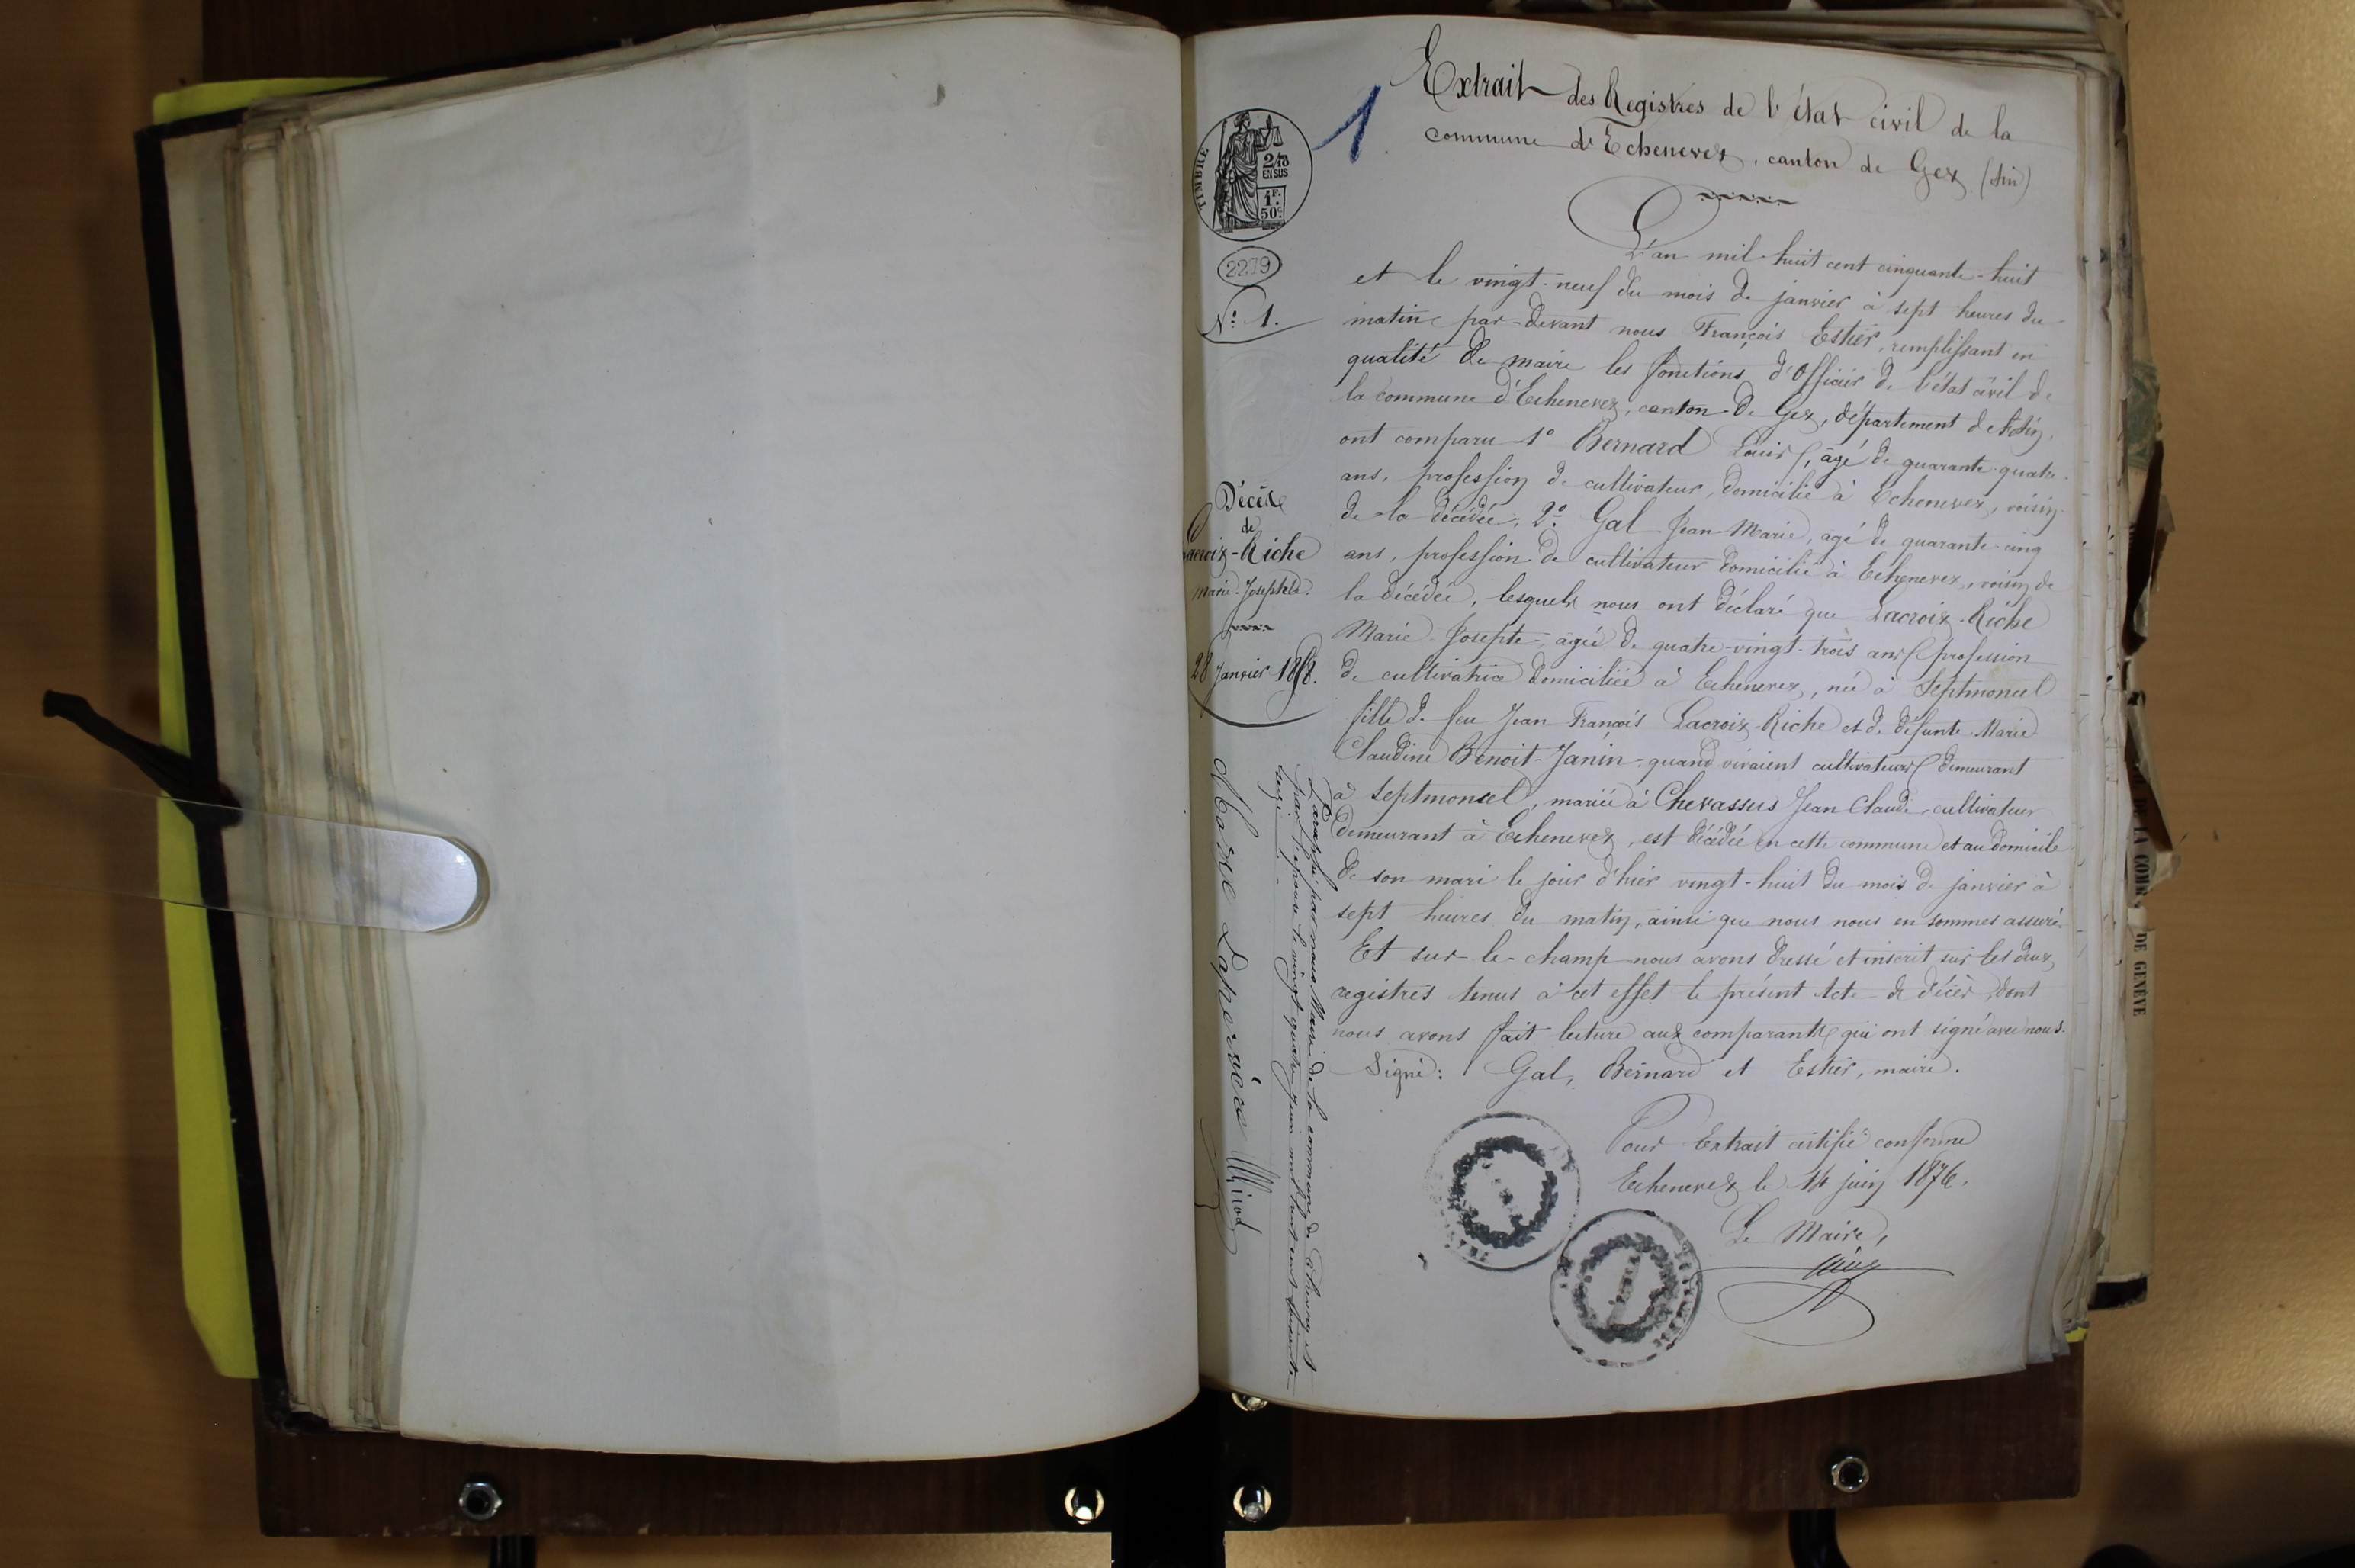 Extrait des Registres de l'état civil de la
commune d'Echenevex, canton de Gex (Ain)
1
TIMBRE
2/10
EN SUS
1F.
50c
2279
N° 1.
L'an mil-huit cent cinquante-huit
et le vingt-neuf du mois de janvier à sept heures du
matin par-devant nous François Estier, remplissant en
qualité de maire les fonctions d'Officier de l'état civil de
la commune d'Echenevex, canton de Gex, département de l'Ain,
ont comparu 1° Bernard Louis, âgé de quarante-quatre
ans, profession de cultivateur, domicilié à Echenevex, voisin
de la décédée, 2° Gal Jean-Marie, âgé de quarante-cinq
ans, profession de cultivateur domicilié à Echenevex, voisin de
la décédée, lesquels nous ont déclaré que Lacroix-Riche
Marie-Josephte, âgée de quatre-vingt-trois ans, profession
de cultivatrice domiciliée à Echenevex, née à Septmoncel
fille de feu Jean François Lacroix-Riche et de défunte Marie
Claudine Benoit-Janin, quand vivaient cultivateurs demeurant
à Septmoncel, mariée à Chevassus Jean Claude, cultivateur
demeurant à Echenevex, est décédée en cette commune et au domicile
de son mari le jour d'hier vingt-huit du mois de janvier à
sept heures du matin, ainsi que nous nous en sommes assuré.
Et sur-le-champ nous avons dressé et inscrit sur les deux
registres tenus à cet effet le présent acte de décès, dont
nous avons fait lecture aux comparants qui ont signé avec nous.
Signé: Gal, Bernard et Estier, maire.
Pour Extrait certifié conforme
Echenevex le 14 juin 1876.
Le Maire,
Décès
de
Lacroix-Riche
Marie-Josephte.
28 Janvier 1858.
Paraphé par nous Maire de la commune de Chevry et
par l'épouse le vingt quatre Juin mil huit cent soixante
seize
Marie Laperrière
DE LA COMM
DE GENÈVE